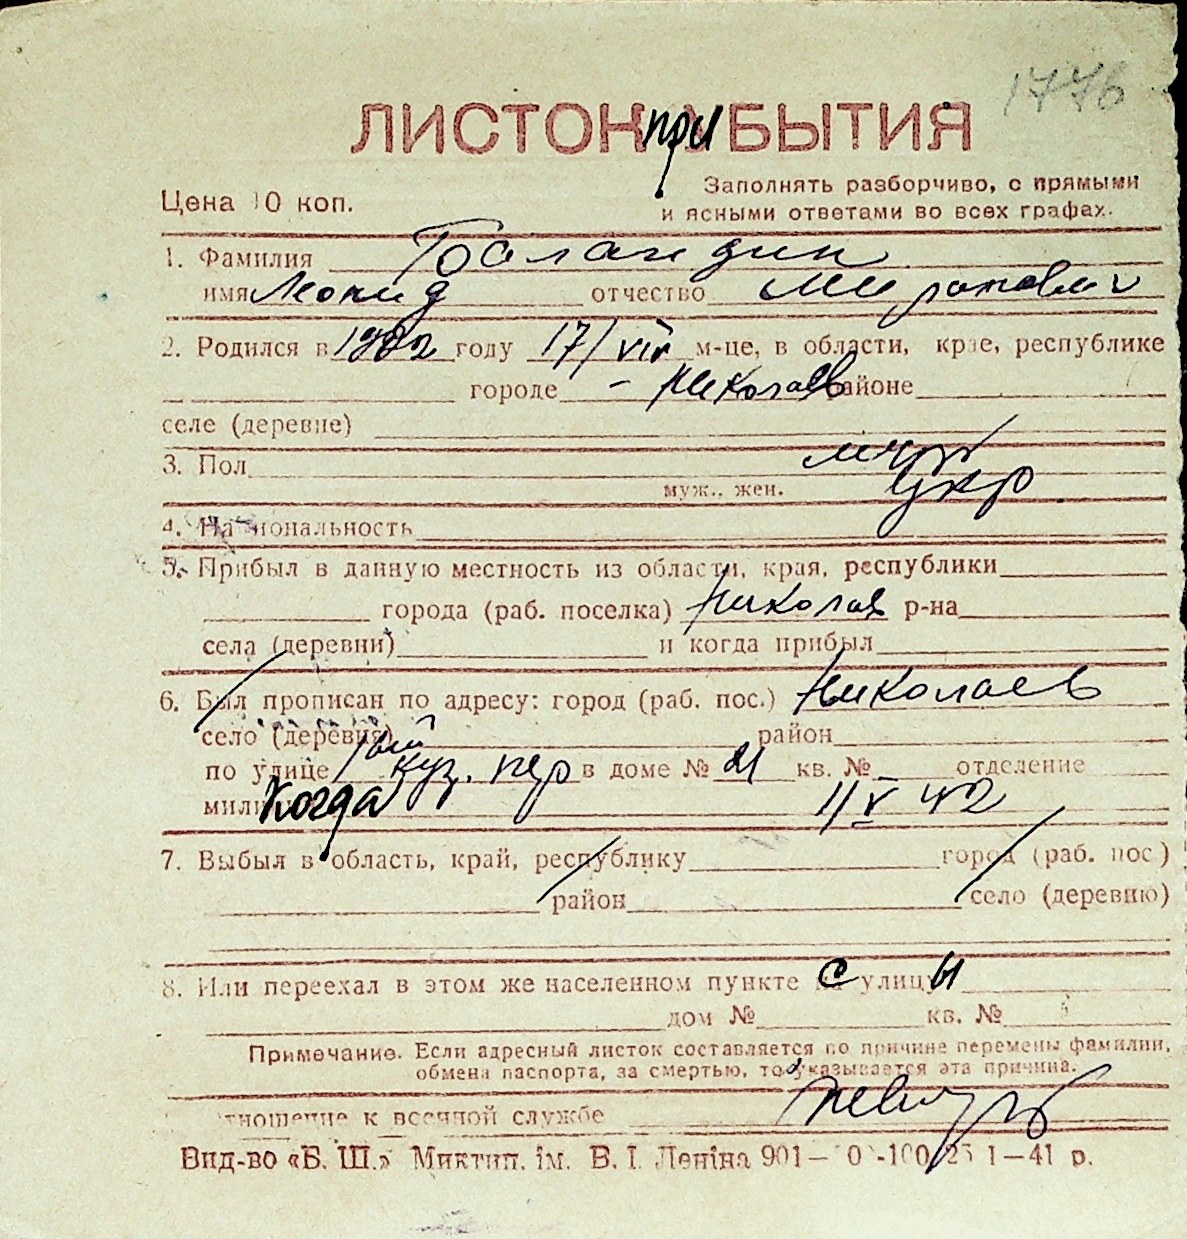 1776
ЛИСТОК приБЫТИЯ
Цена 10 коп.
Заполнять разборчиво, с прямыми
и ясными ответами во всех графах.
1. Фамилия Баландин
имя Леонид отчество
2. Родился в 1922 году 17/VII м-це, в области, крае, республике
городе - Николаев районе
селе (деревне)
3. Пол муж
муж., жен.
укр
4. Национальность
5. Прибыл в данную местность из области, края, республики
города (раб. поселка) Николаев р-на
села (деревни) и когда прибыл
6. Был прописан по адресу: город (раб. пос.) Николаев
село (деревня) район
по улице 1ый куз. пер в доме № 21 кв. № — отделение
Когда 1/V 42
7. Выбыл в область, край, республику город (раб. пос.)
район село (деревню)
8. Или переехал в этом же населенном пункте с улицы
дом № кв. №
Примечание. Если адресный листок составляется по причине перемены фамилии,
обмена паспорта, за смертью, то указывается эта причина.
Отношение к военной службе
Вид-во «Б. Ш.» Миктип. ім. В. І. Леніна 901— 1—41 р.